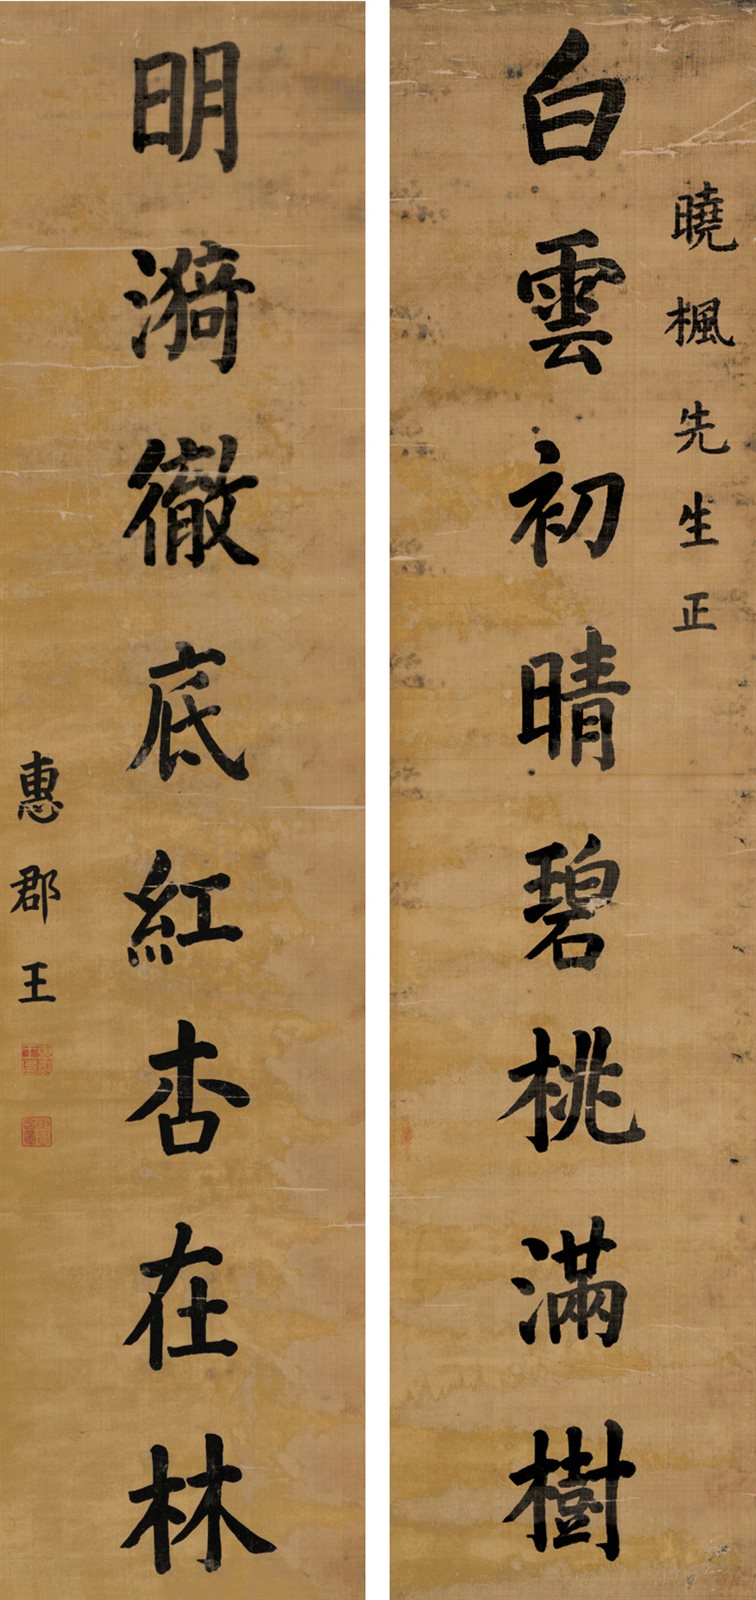 曉楓先生正
白雲初晴碧桃滿樹
明漪徹底紅杏在林
惠郡王